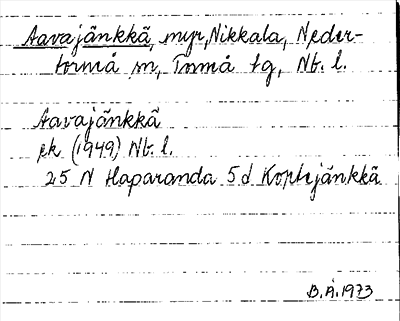 Aavajänkkä, myr, Nikkala, Neder-
torneå sn, Torneå tg, Nb. l.
Aavajänkkä
ek (1949) Nb. l.
25 N Haparanda 5d Koptajänkkä
B.Å. 1973